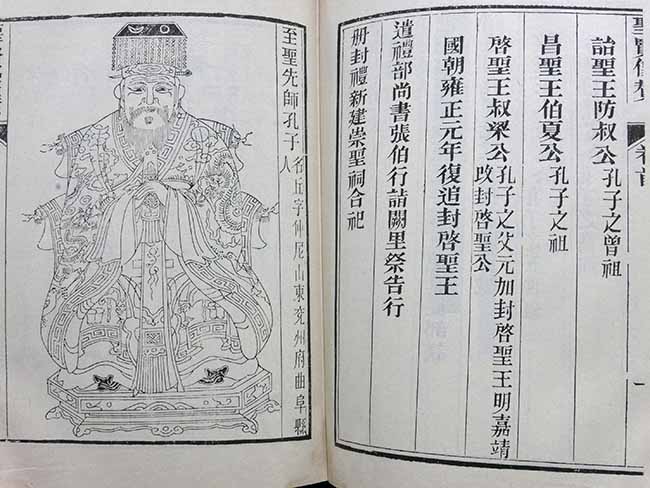 聖賢像贊
卷首
一
詒聖王防叔公孔子之曾祖
昌聖王伯夏公孔子之祖
啓聖王叔梁公孔子之父元加封啓聖王明嘉靖
改封啓聖公
國朝雍正元年復追封啓聖王
遣禮部尚書張伯行詣闕里祭告行
册封禮新建崇聖祠合祀
至聖先師孔子名丘字仲尼山東兗州府曲阜縣
人